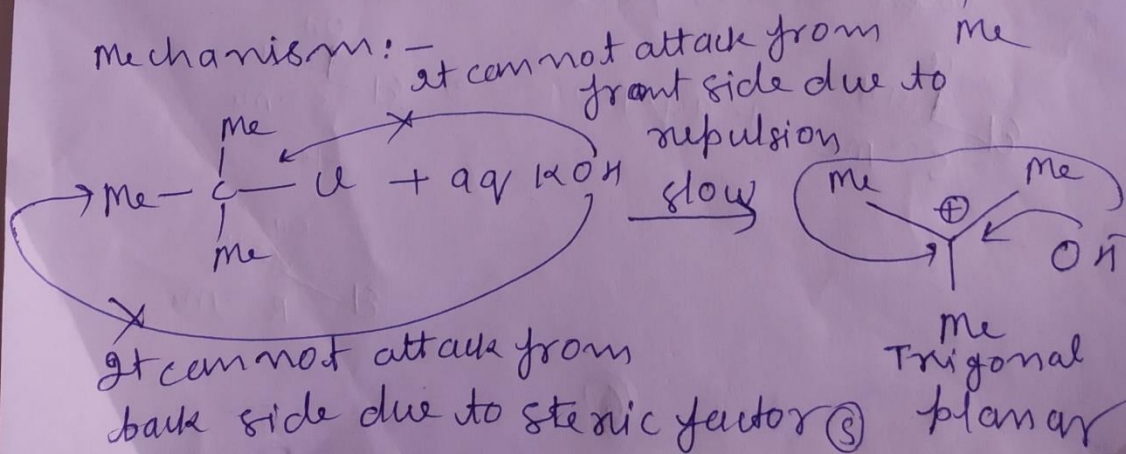 Mechanism:- It cannot attack from Me
front side due to
repulsion
Me
Me - C - Cl + aq KOH slow
Me
Me ⊕ Me
OH
Me
Trigonal
planar
It cannot attack from
back side due to steric factor (S)